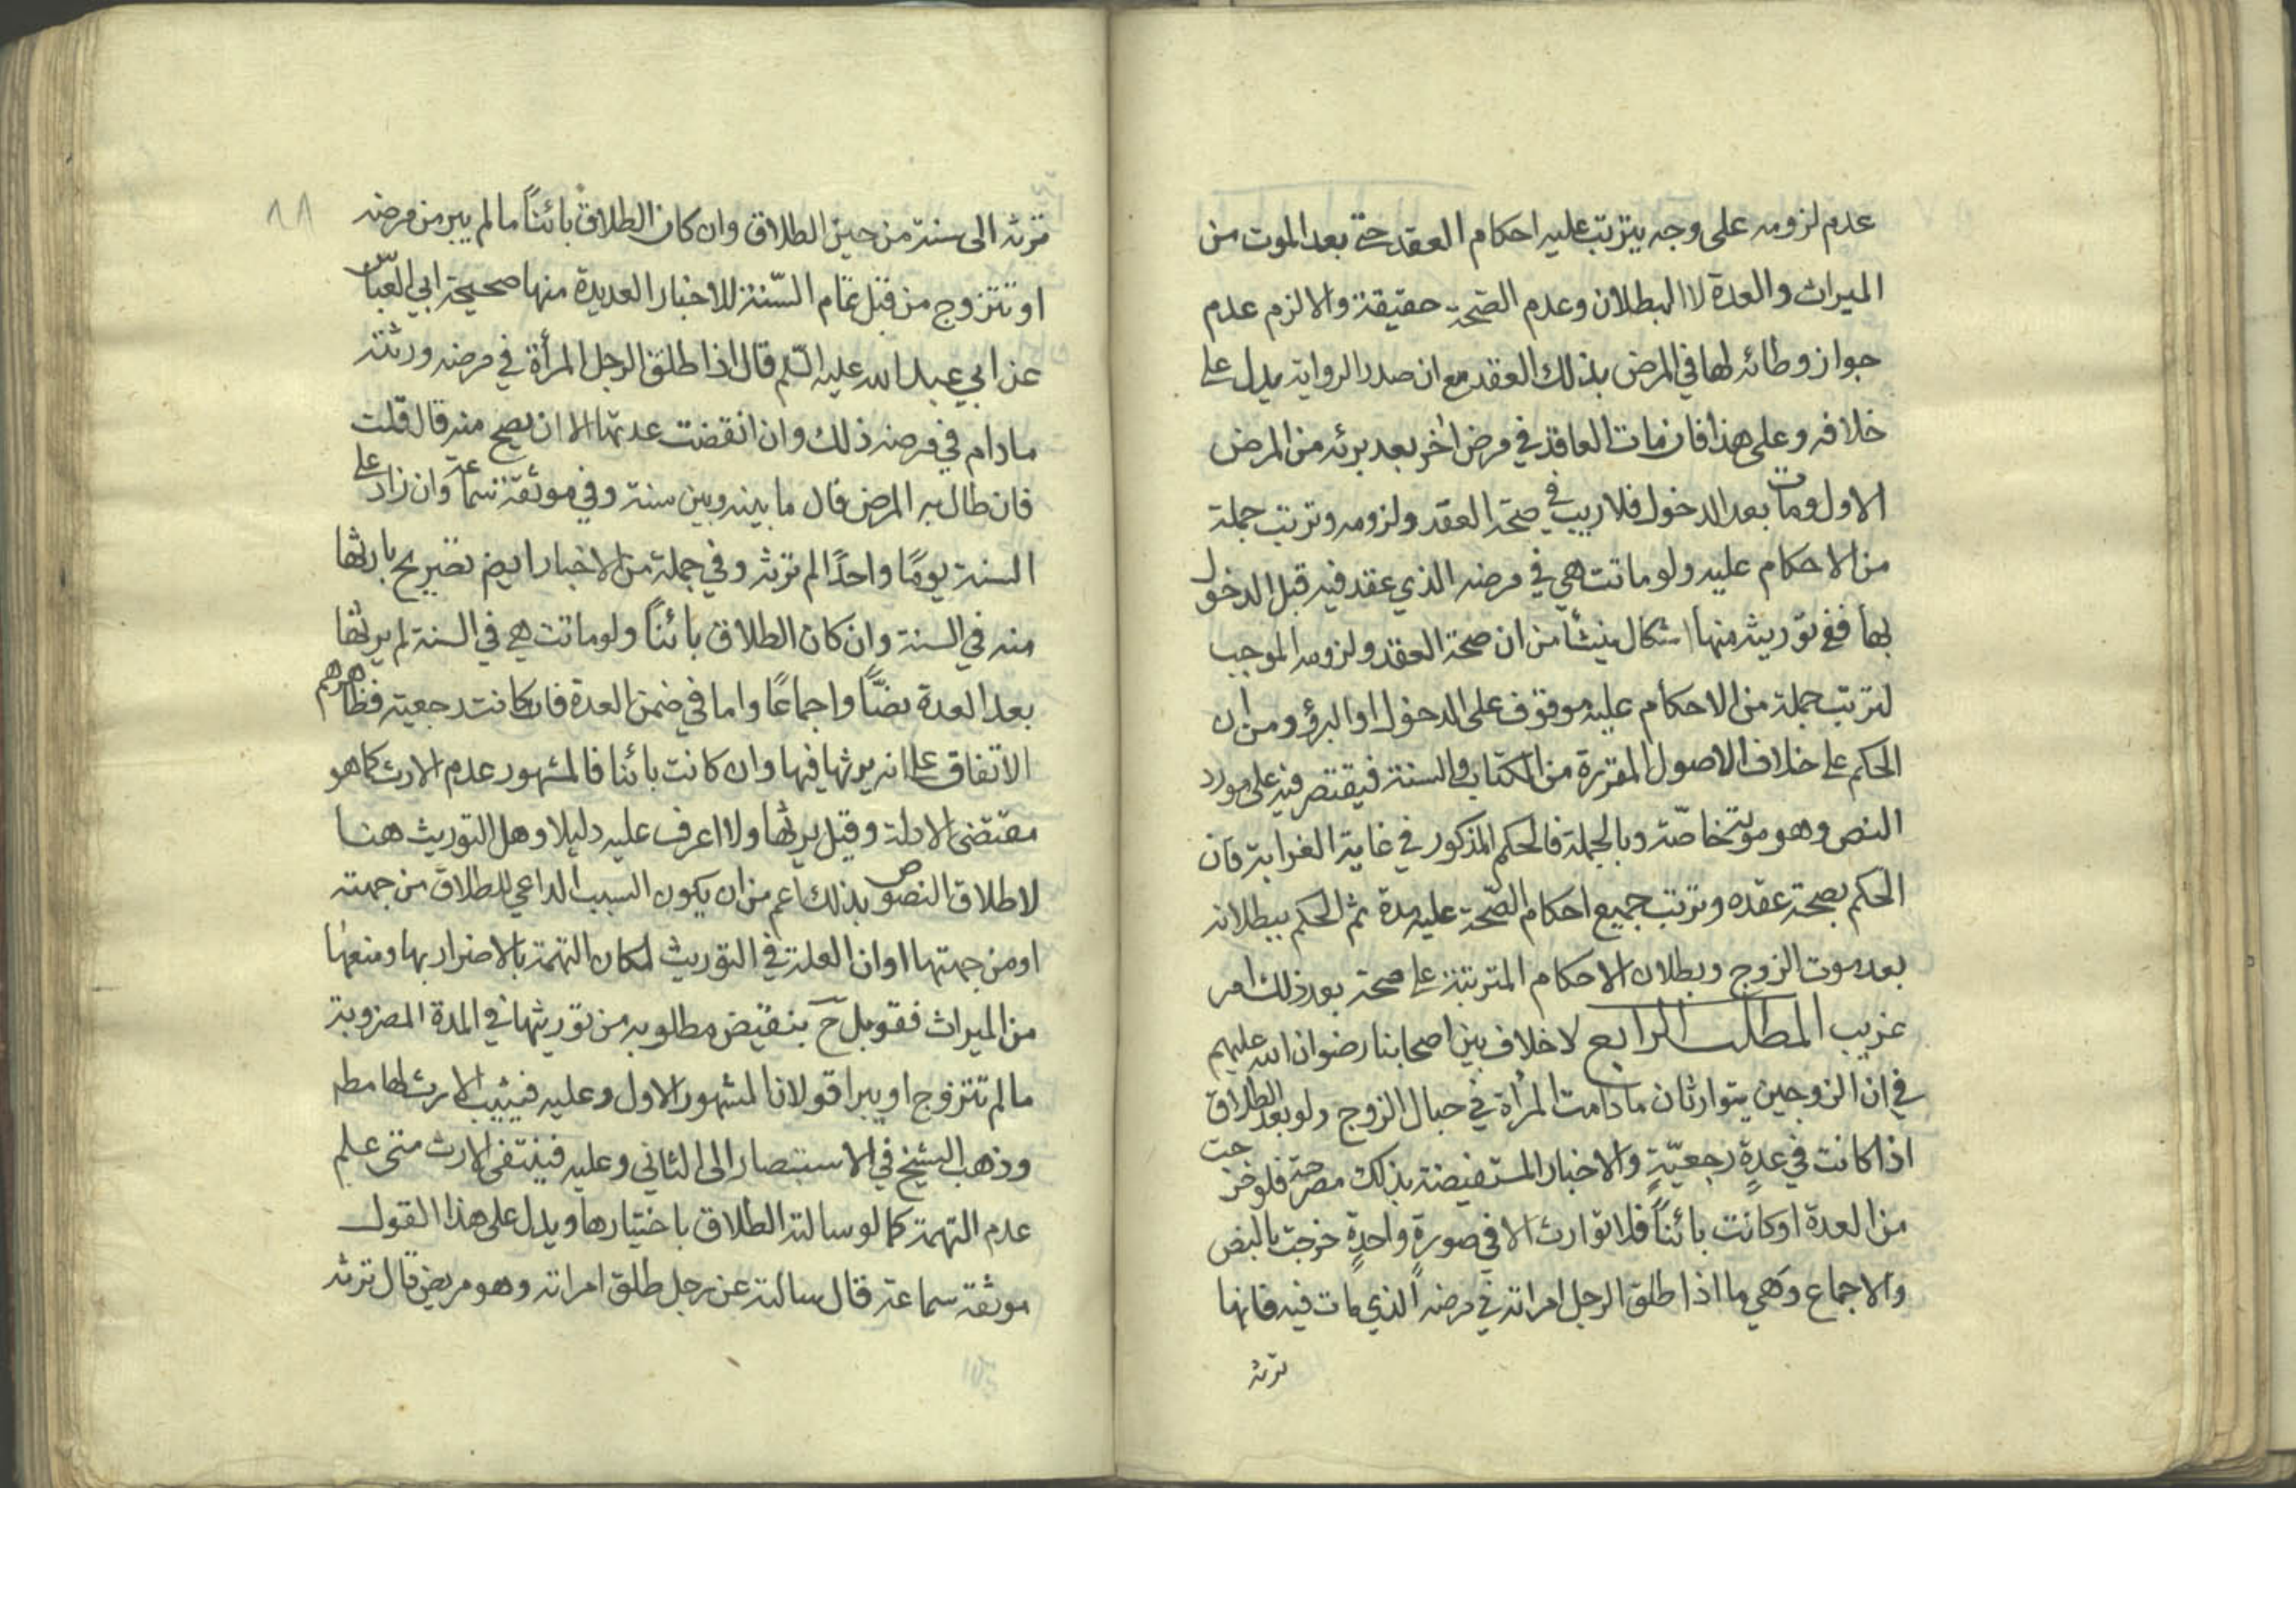 عدم لزومه على وجه يترتب عليه احكام العقد حتى بعد الموت من
الميراث والعدة لا البطلان وعدم الصّحة حقيقة والا لزم عدم
جواز وطائه لها في المرض بذلك العقد مع ان صدر الرواية يدل على
خلافه وعلى هذا فان مات العاقد في مرض اخر بعد برئه من المرض
الاول ومات بعد الدخول فلا ريب في صحة العقد ولزومه وترتب جملة
من الاحكام عليه ولو ماتت هي في مرضه الذي عقد فيه قبل الدخول
بها ففي توريثه منها اشكال ينشأ من ان صحة العقد ولزومه الموجب
لترتب جملة من الاحكام عليه موقوف على الدخول او البرؤ ومن ان
الحكم على خلاف الاصول المقررة من الكتاب والسنة فيقتصر فيه على مورد
النص وهو موته خاصّة وبالجملة فالحكم المذكور في غاية الغرابة فان
الحكم بصحة عقده وترتب جميع احكام الصّحة عليه مدة ثم الحكم ببطلانه
بعد موت الزوج وبطلان الاحكام المترتبة على صحته بعد ذلك امر
غريب المطلب الرابع لا خلاف بين اصحابنا رضوان الله عليهم
في ان الزوجين يتوارثان ما دامت المرأة في حبال الزوج ولو بعد الطلاق
اذا كانت في عدةٍ رجعيّةٍ والاخبار المستفيضة بذلك مصرحة فلو خرجت
من العدة او كانت بائناً فلا توارث الا في صورةٍ واحدةٍ خرجت بالنص
والاجماع وهي ما اذا طلق الرجل امراته في مرضه الذي مات فيه فانها
ترثه
٨٨
ترثه الى سنة من حين الطلاق وان كان الطلاق بائناً ما لم يبر من مرضه
او تتزوج من قبل تمام السّنة للاخبار العديدة منها صحيحة ابي العبّاس
عن ابي عبد الله عليه السّلم قال اذا طلق الرجل المرأة في مرضه ورثته
مادام في مرضه ذلك وان انقضت عدتها الا ان يصح منه قال قلت
فان طال به المرض قال ما بينه وبين سنة وفي موثقة سماعة وان زاد على
السنة يومًا واحدًا لم ترثه وفي جملة من الاخبار ايضم تصريح بارثها
منه في السنة وان كان الطلاق بائناً ولو ماتت هي في السنة لم يرثها
بعد العدة نصًّا واجماعًا واما في ضمن العدة فان كانت رجعية فظاهرهم
الاتفاق على انه يرثها فيها وان كانت بائنا فالمشهور عدم الارث كما هو
مقتضى الادلة وقيل يرثها ولا اعرف عليه دليلا وهل التوريث هنا
لاطلاق النصوص بذلك اعم من ان يكون السبب الداعي للطلاق من جهته
او من جهتها او ان العلة في التوريث لمكان التهمة بالاضرار بها ومنعها
من الميراث فقوبل ح بنقيض مطلوبه من توريثها في المدة المضروبة
ما لم تتزوج او يبرا قولان المشهور الاول وعليه فيثبت الارث لها مطم
وذهب الشيخ في الاستبصار الى الثاني وعليه فينتفى الارث متى علم
عدم التهمة كما لو سالته الطلاق باختيارها ويدل على هذا القول
موثقة سماعة قال سالته عن رجل طلق امراته وهو مريض قال ترثه